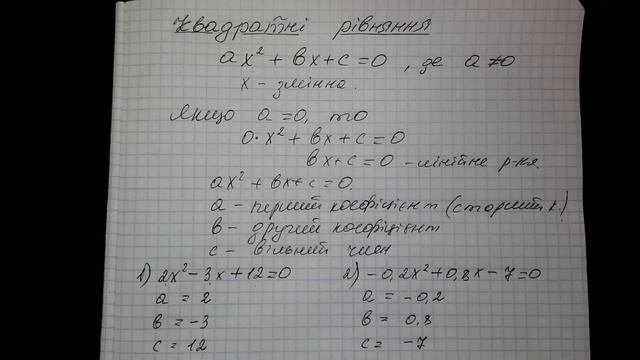 Квадратні рівняння
ax² + bx + c = 0 , де a ≠ 0
x - змінна.
Якщо a = 0, то
0·x² + bx + c = 0
bx + c = 0 - лінійне р-ня.
ax² + bx + c = 0.
a - перший коефіцієнт (старший к.)
b - другий коефіцієнт
c - вільний член
1) 2x² - 3x + 12 = 0
a = 2
b = -3
c = 12
2) -0,2x² + 0,8x - 7 = 0
a = -0,2
b = 0,8
c = -7